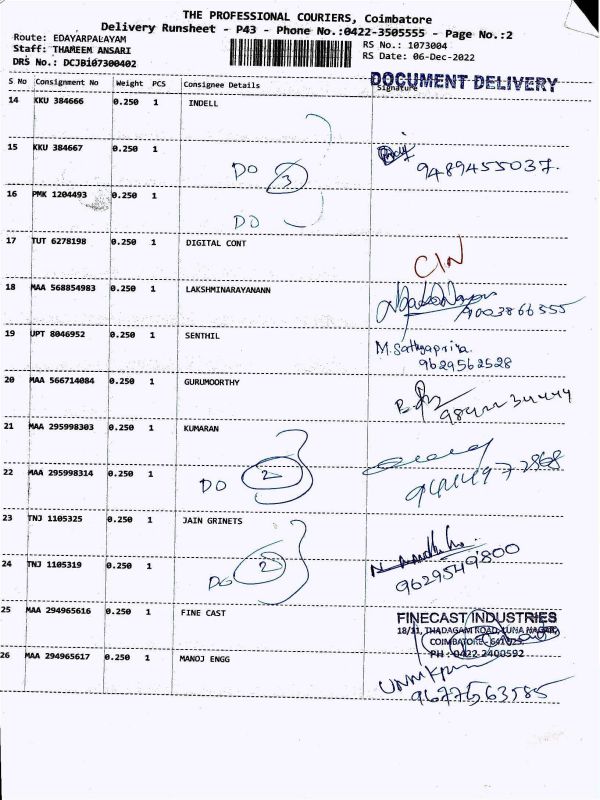 THE PROFESSIONAL COURIERS, Coimbatore
Delivery Runsheet - P43 - Phone No.:0422-3505555 - Page No.:2
Route: EDAYARPALAYAM
RS No.: 1073004
Staff: THAMEEM ANSARI
RS Date: 06-Dec-2022
DRS No.: DCJBi07300402
DOCUMENT DELIVERY
S No Consignment No Weight PCS Consignee Details Signature
14 KKU 384666 0.250 1 INDELL
15 KKU 384667 0.250 1
DO 3 9489455037.
16 PMK 1204493 0.250 1
DO
17 TUT 6278198 0.250 1 DIGITAL CONT
CIN
18 MAA 568854983 0.250 1 LAKSHMINARAYANANN
9003866555
19 UPT 8046952 0.250 1 SENTHIL
M. Sathyapriya.
9629562528
20 MAA 566714084 0.250 1 GURUMOORTHY
21 MAA 295998303 0.250 1 KUMARAN
22 MAA 295998314 0.250 1
DO 2
23 TNJ 1105325 0.250 1 JAIN GRINETS
24 TNJ 1105319 0.250 1
DO 2 9629549800
25 MAA 294965616 0.250 1 FINE CAST
FINECAST INDUSTRIES
18/11, THADAGAM ROAD, LUNA NAGAR,
COIMBATORE- 641025
PH : 0422-2400592
26 MAA 294965617 0.250 1 MANOJ ENGG
9677563585